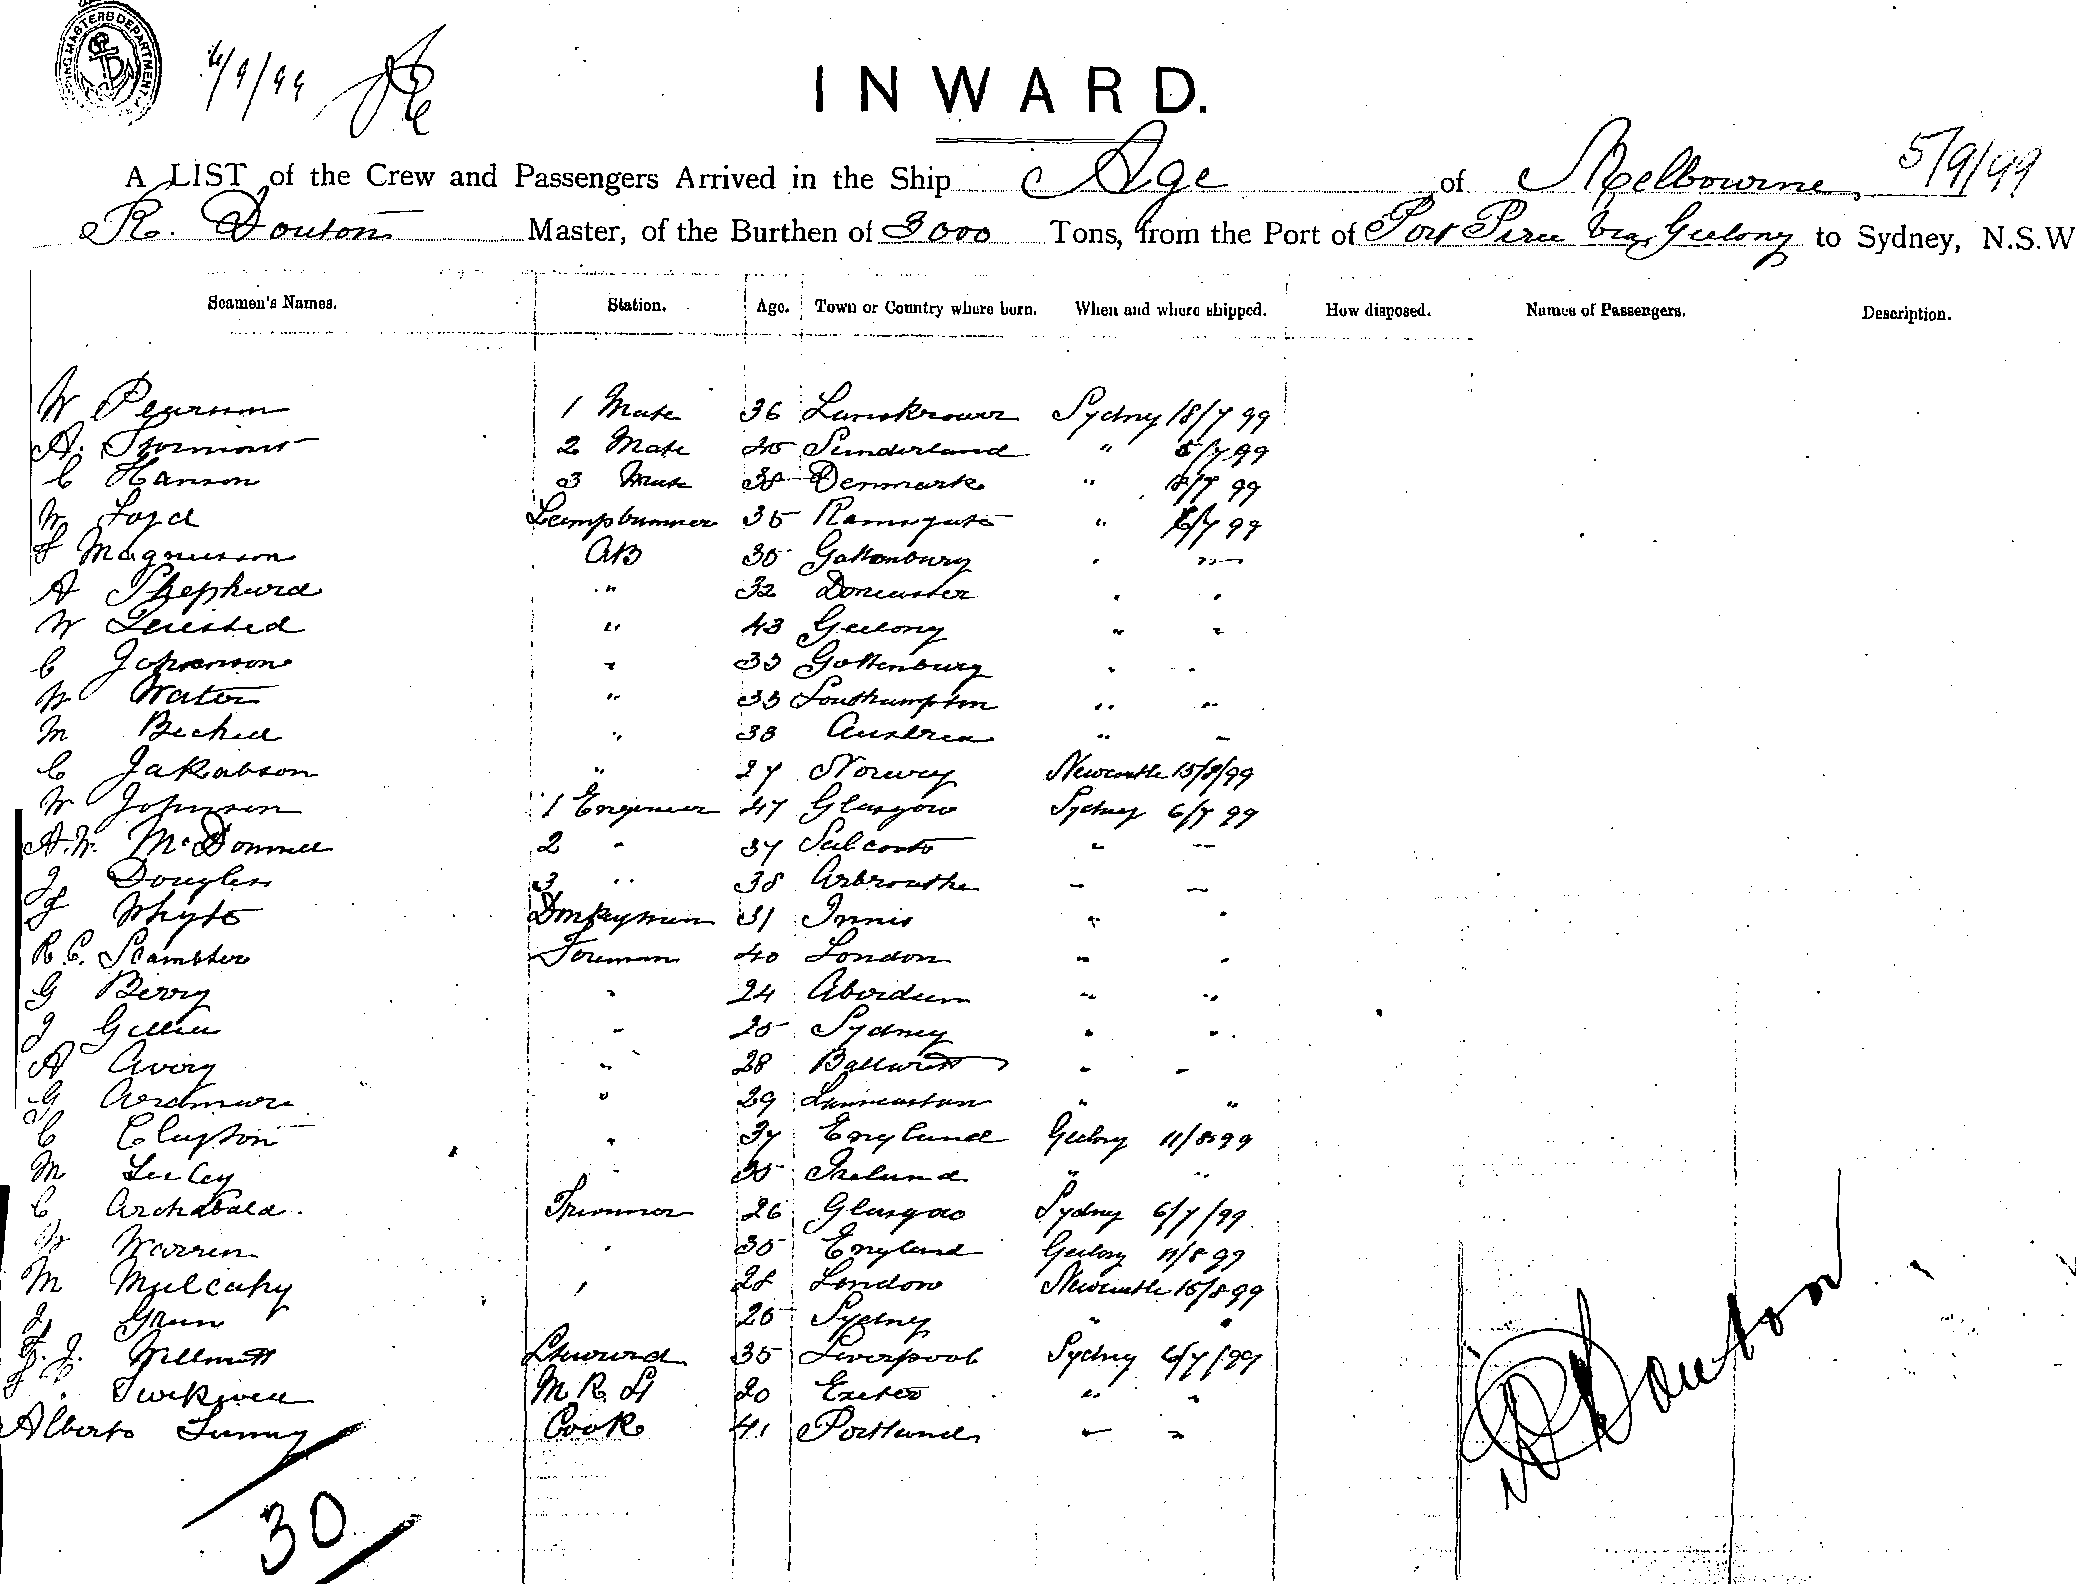 SHIPPING MASTERS DEPARTMENT
6/9/99
INWARD.
A LIST of the Crew and Passengers Arrived in the Ship Age of Melbourne, 5/9/99
R. Douton Master, of the Burthen of 3000 Tons, from the Port of Port Pirie via Geelong to Sydney, N.S.W
Seamen's Names. Station. Age. Town or Country where born. When and where shipped. How disposed. Names of Passengers. Description.
W Pearson 1 Mate 36 Sydney 18/7 99
A. 2 Mate 45 Sunderland " 5/7 99
C Hanson 3 Mate 38 Denmark " 99
W Loyd Lamptrimmer 35 Ramsgate " 6/7 99
Magnusson AB 35 Gottenburg
A Shephard " 32 Doncaster " "
W " 43 Geelong " "
C Johanson " 33 Gottenburg " "
W Water " 33 Southampton " "
M " 38 Austria " "
C Jakabson " 27 Norway Newcastle 15/8/99
W Johnson 1 Engineer 47 Glasgow Sydney 6/7 99
A.W. McDonnell 2 " 37 Salcoats " "
J Douglas 3 " 38 Arbrouthe " "
J Whyte Donkeyman 31 Innis " "
R.C. Scambler Foreman 40 London " "
G Berry " 24 Aberdeen " "
J Gillies " 25 Sydney " "
A Avery " 28 Ballaratt " "
G Ardmore " 29 Launceston " "
C Clayton " 37 England Geelong 11/8 99
M " 35 Ireland " "
C Archabald. Trimmer 26 Glasgow Sydney 6/7/99
W Warren " 35 England Geelong 11/8 99
M Mulcahy " 28 London Newcastle 15/8 99
J. Green 25 Sydney " "
F. J. Willmott Steward 35 Liverpool Sydney 6/7/99
M R St 20 Exeter " "
Alberto Cook 41 Portland " "
30
R Douton